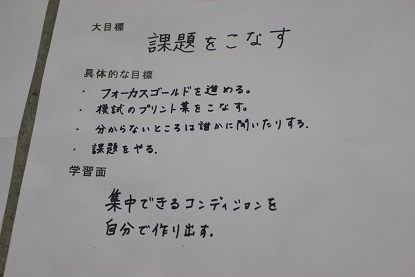 大目標
課題をこなす
具体的な目標
・ フォーカスゴールドを進める。
・ 模試のプリント集をこなす。
・ 分からないところは誰かに聞いたりする.
・ 課題をやる.
学習面
集中できるコンディションを
自分で作り出す。